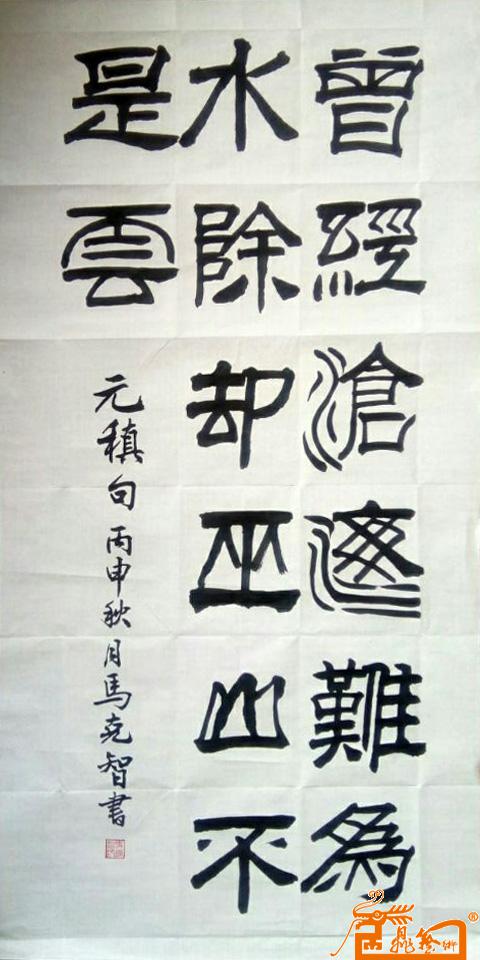 曾經滄海難為
水除却巫山不
是雲
元稹句 丙申秋月馬克智書